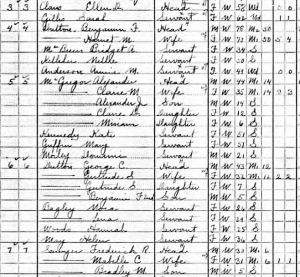 3 3 Clark Ellen D. Head F W 58 Wd
Gillis Sarah Servant F W 62 Wd
4 4 Dutton Benjamin F. Head M W 78 M 50
Harriet M. Wife F W 71 M 50 5 4
Bridget A. Servant F W 34 S
Kelleher Nellie Servant F W 30 S
Anderson Annie M. Servant F W 41 Wd 0 0
5 5 McGregor Alexander Head M W 44 M 14
Claire M. Wife F W 35 M 14 3 3
Alexander Jr Son M W 14 S
Claire D. Daughter F W 12 S
Miriam Daughter F W 6 S
Kennedy Kate Servant F W 51 S
Griffin Mary Servant F W 51 S
Servant M W 21 S
6 6 Dutton George C. Head M W 43 M 12
Gertrude S Wife F W 32 M 12 2 2
Gertrude S. Daughter F W 7 S
Benjamin F 2nd Son M W 5 S
Bagley Nora Servant F W 26 S
Lena Servant F W 29 S
Woods Hannah Servant F W 25 S
May Helen Servant F W 36 S
7 7 Sawyer Frederick R. Head M W 37 M 6
Mabelle C Wife F W 31 M 6 1 1
Bradley M. Son M W 5 S